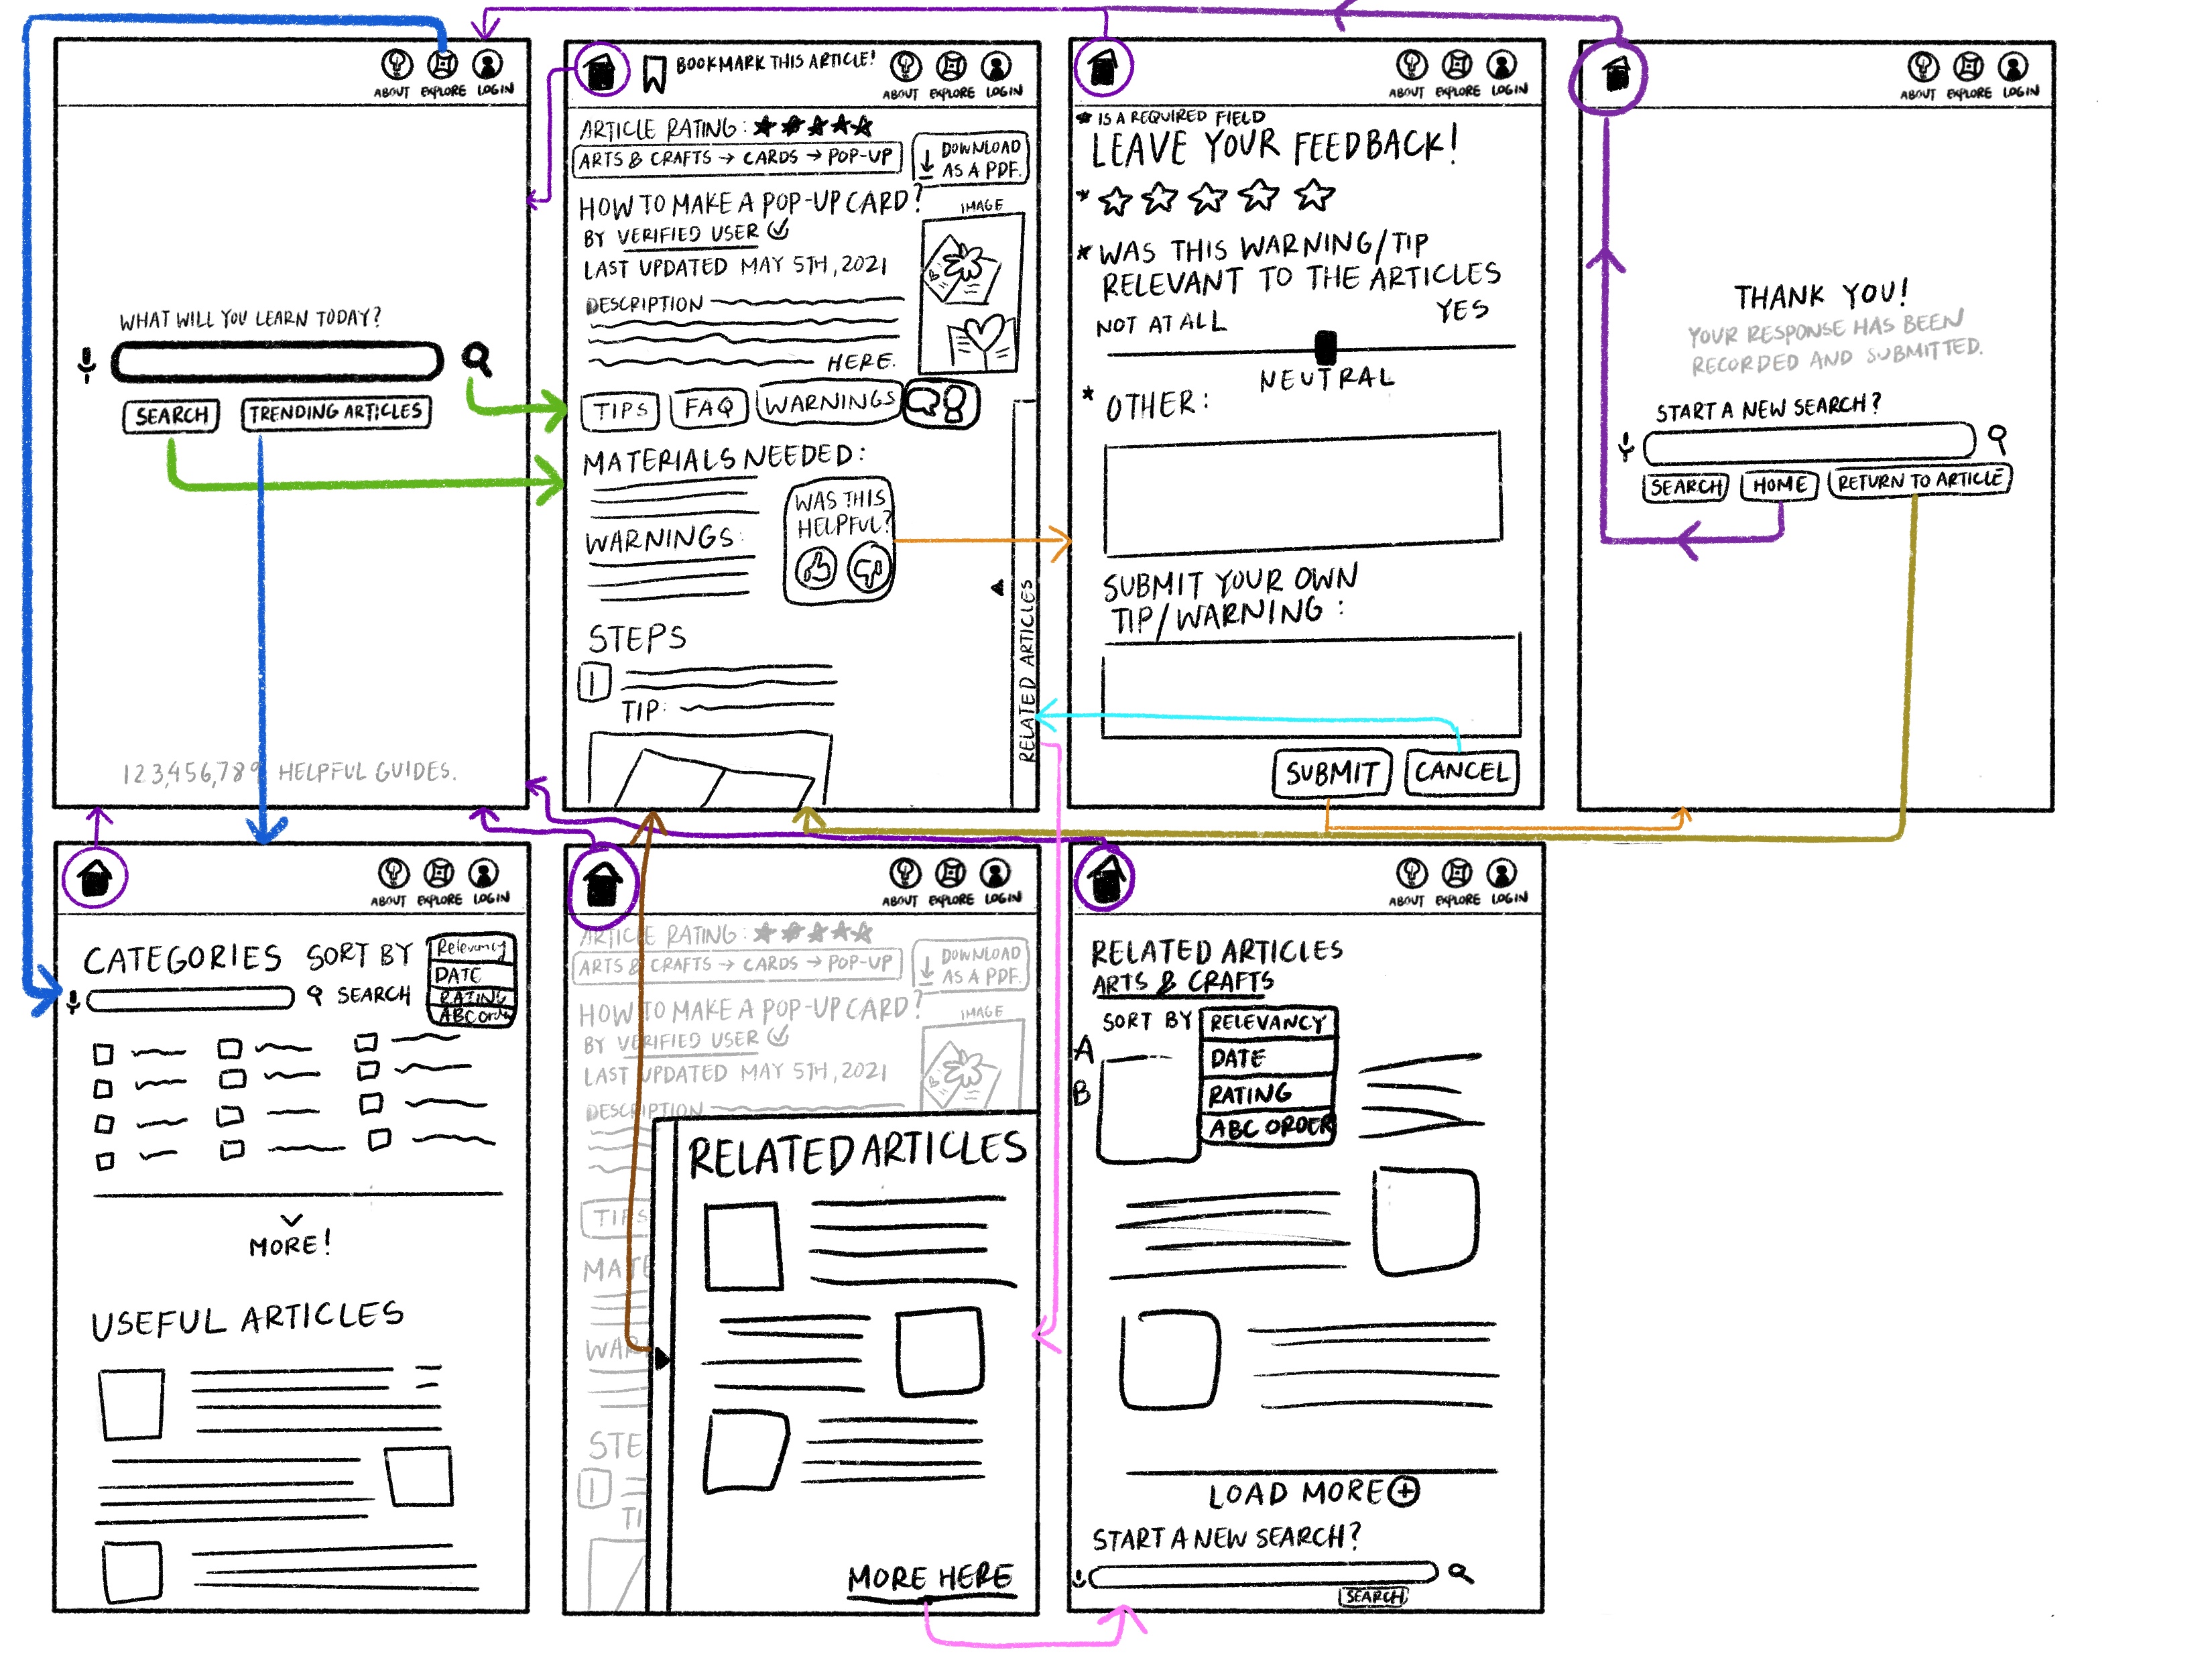 ABOUT EXPLORE LOGIN
WHAT WILL YOU LEARN TODAY?
SEARCH
TRENDING ARTICLES
123,456,789 HELPFUL GUIDES.
BOOKMARK THIS ARTICLE!
ABOUT EXPLORE LOGIN
ARTICLE RATING:
ARTS & CRAFTS → CARDS → POP-UP
DOWNLOAD
AS A PDF.
HOW TO MAKE A POP-UP CARD?
BY VERIFIED USER
LAST UPDATED MAY 5TH, 2021
IMAGE
DESCRIPTION
HERE.
TIPS
FAQ
WARNINGS
MATERIALS NEEDED:
WAS THIS
HELPFUL?
WARNINGS:
STEPS
1
TIP:
RELATED ARTICLES
ABOUT EXPLORE LOGIN
* IS A REQUIRED FIELD
LEAVE YOUR FEEDBACK!
*
* WAS THIS WARNING/TIP
RELEVANT TO THE ARTICLES
NOT AT ALL YES
NEUTRAL
* OTHER:
SUBMIT YOUR OWN
TIP/WARNING:
SUBMIT
CANCEL
ABOUT EXPLORE LOGIN
THANK YOU!
YOUR RESPONSE HAS BEEN
RECORDED AND SUBMITTED.
START A NEW SEARCH?
SEARCH
HOME
RETURN TO ARTICLE
ABOUT EXPLORE LOGIN
CATEGORIES SORT BY
Relevancy
DATE
RATING
ABC Order
SEARCH
MORE!
USEFUL ARTICLES
ABOUT EXPLORE LOGIN
ARTICLE RATING:
ARTS & CRAFTS → CARDS → POP-UP
DOWNLOAD
AS A PDF.
HOW TO MAKE A POP-UP CARD?
BY VERIFIED USER
LAST UPDATED MAY 5TH, 2021
IMAGE
DESCRIPTION
RELATED ARTICLES
TIPS
MATE
WAR
STE
1
TI
MORE HERE
ABOUT EXPLORE LOGIN
RELATED ARTICLES
ARTS & CRAFTS
SORT BY
RELEVANCY
DATE
RATING
ABC ORDER
A
B
LOAD MORE
START A NEW SEARCH?
SEARCH